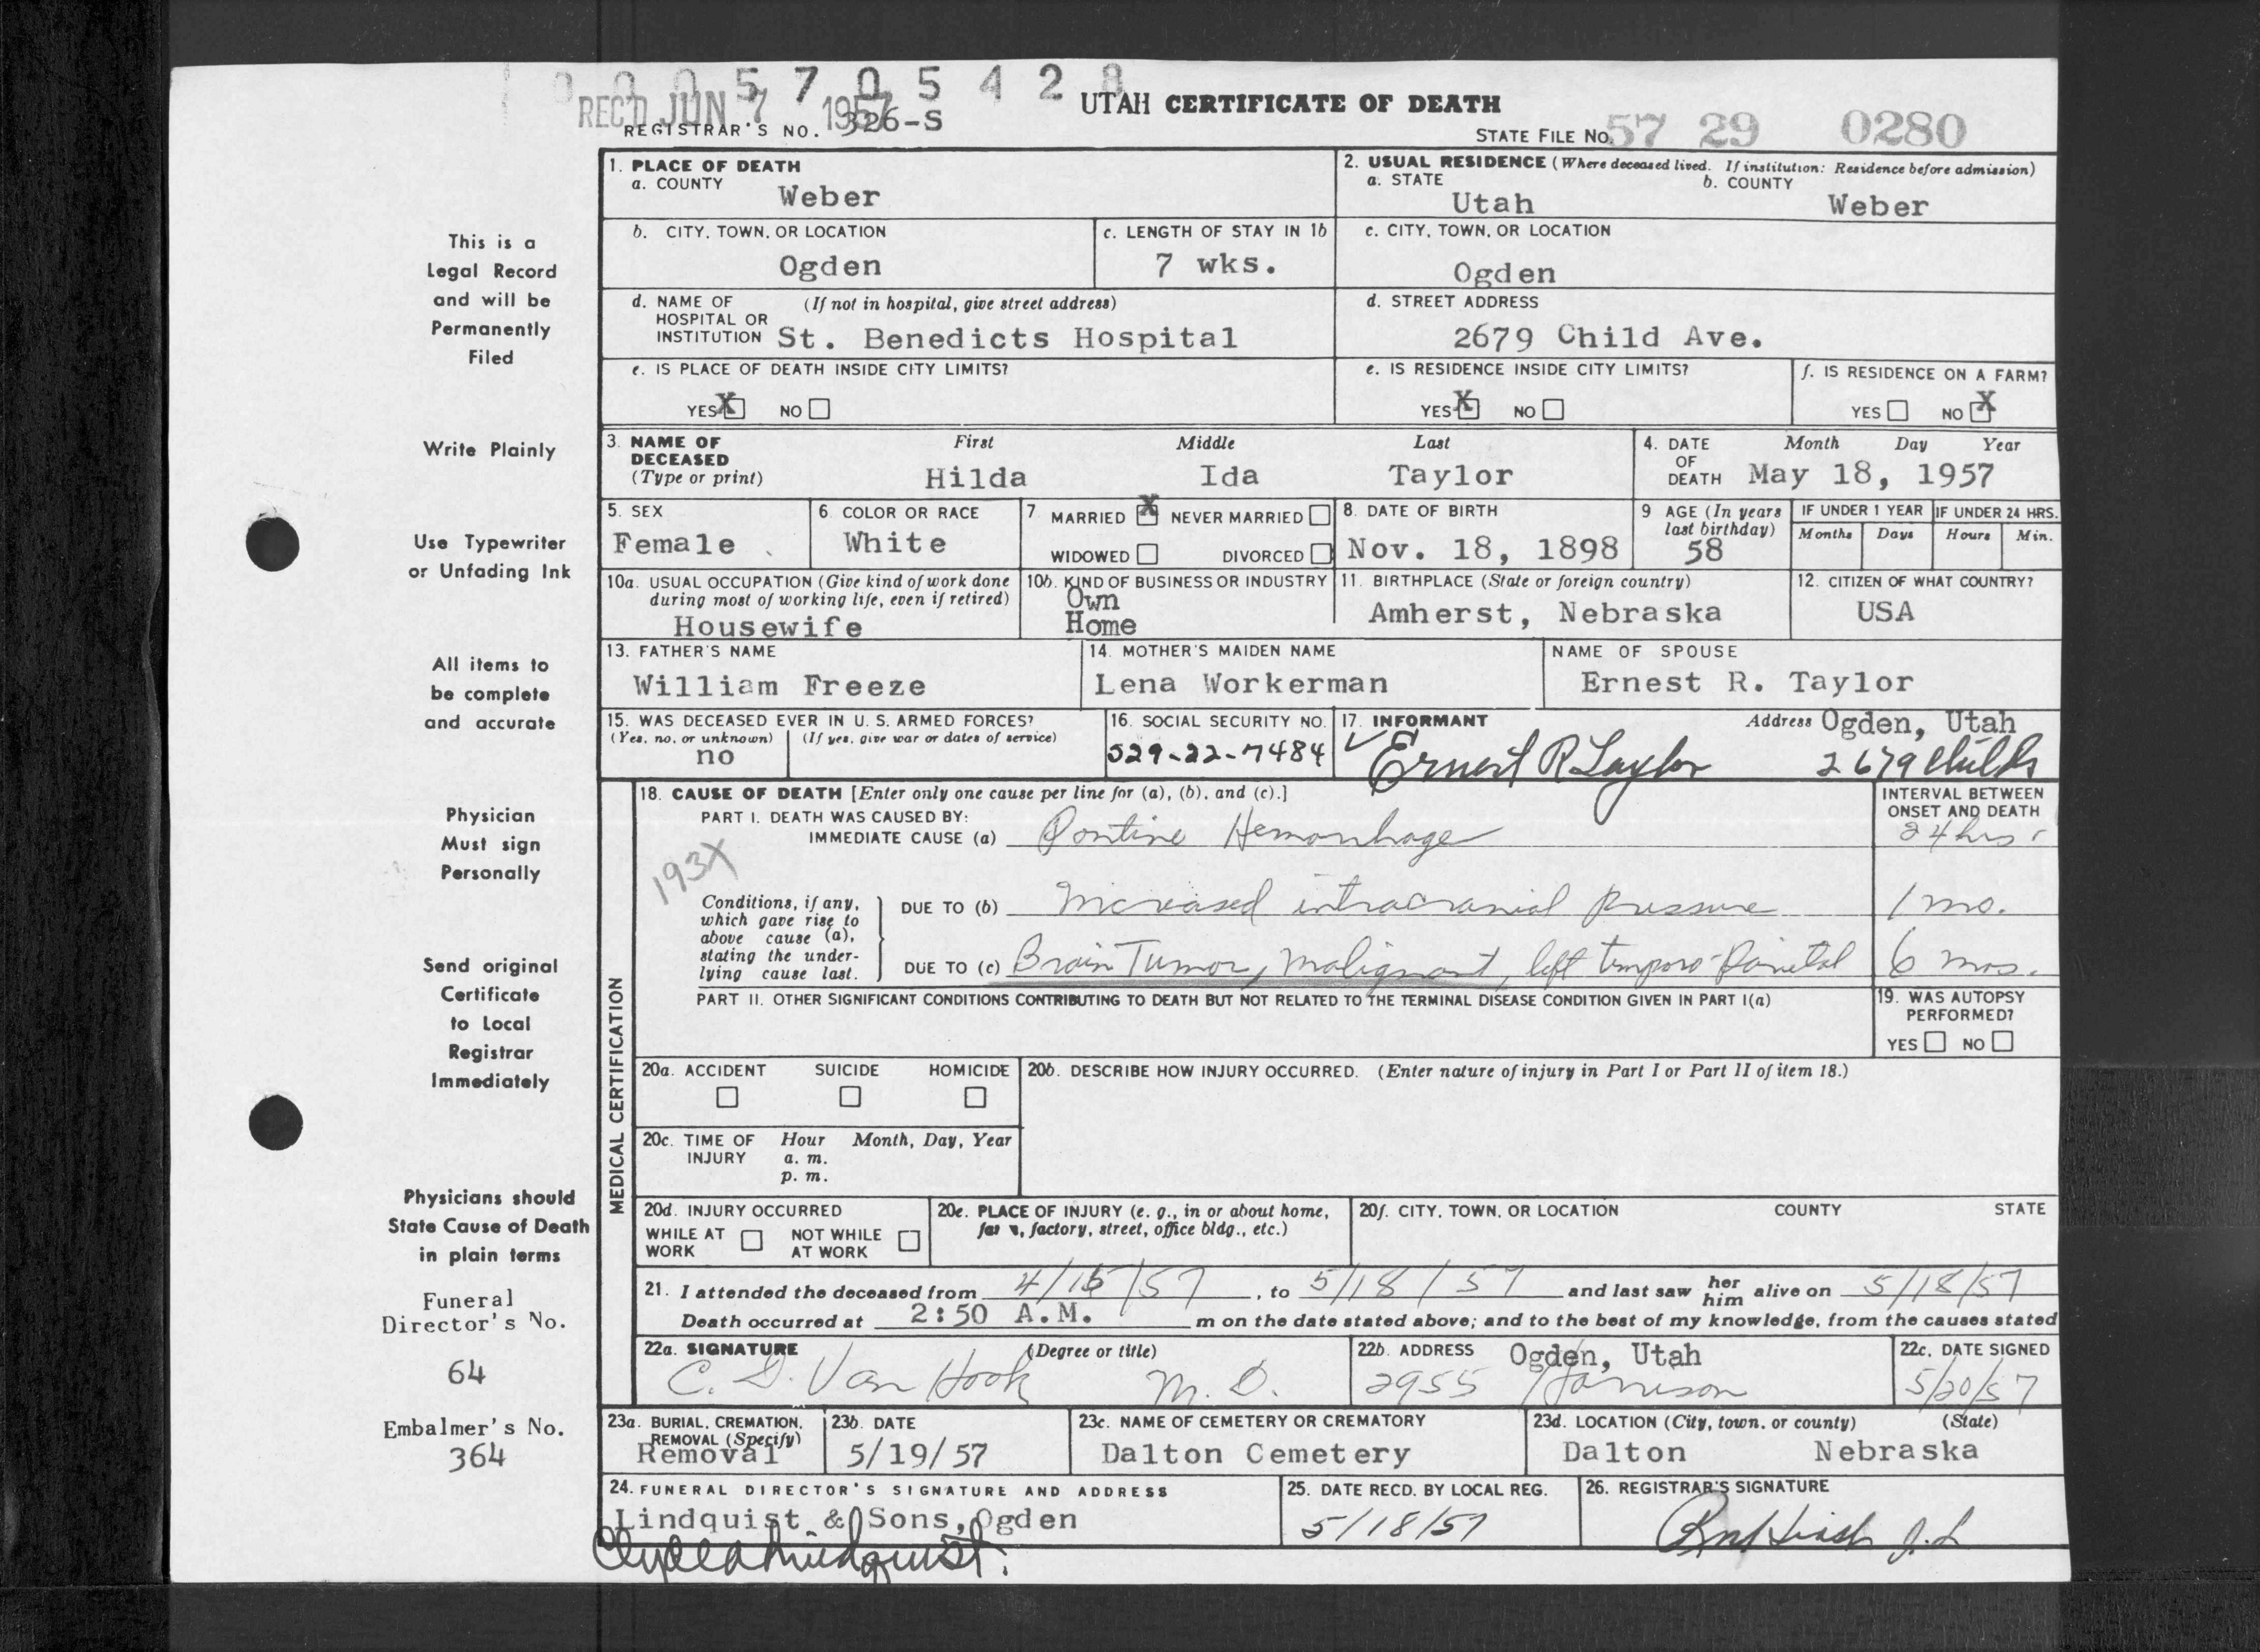 0 0 0 5 7 0 5 4 2 8
REC'D JUN 7 1957
REGISTRAR'S NO. 326-S
UTAH CERTIFICATE OF DEATH
STATE FILE No. 57 29 0280
1. PLACE OF DEATH
a. COUNTY
Weber
2. USUAL RESIDENCE (Where deceased lived. If institution: Residence before admission)
a. STATE
Utah
b. COUNTY
Weber
b. CITY, TOWN, OR LOCATION
Ogden
c. LENGTH OF STAY IN 1b
7 wks.
c. CITY, TOWN, OR LOCATION
Ogden
d. NAME OF (If not in hospital, give street address)
HOSPITAL OR
INSTITUTION St. Benedicts Hospital
d. STREET ADDRESS
2679 Child Ave.
e. IS PLACE OF DEATH INSIDE CITY LIMITS?
YES X NO
e. IS RESIDENCE INSIDE CITY LIMITS?
YES X NO
f. IS RESIDENCE ON A FARM?
YES NO X
3. NAME OF DECEASED
(Type or print)
First Middle Last
Hilda Ida Taylor
4. DATE OF DEATH
Month Day Year
May 18, 1957
5. SEX
Female
6. COLOR OR RACE
White
7. MARRIED X NEVER MARRIED
WIDOWED DIVORCED
8. DATE OF BIRTH
Nov. 18, 1898
9. AGE (In years
last birthday)
58
IF UNDER 1 YEAR
Months Days
IF UNDER 24 HRS.
Hours Min.
10a. USUAL OCCUPATION (Give kind of work done
during most of working life, even if retired)
Housewife
10b. KIND OF BUSINESS OR INDUSTRY
Own
Home
11. BIRTHPLACE (State or foreign country)
Amherst, Nebraska
12. CITIZEN OF WHAT COUNTRY?
USA
13. FATHER'S NAME
William Freeze
14. MOTHER'S MAIDEN NAME
Lena Workerman
NAME OF SPOUSE
Ernest R. Taylor
15. WAS DECEASED EVER IN U. S. ARMED FORCES?
(Yes, no, or unknown) (If yes, give war or dates of service)
no
16. SOCIAL SECURITY NO.
529-22-7484
17. INFORMANT
Ernest R Taylor
Address Ogden, Utah
2679 Childs
MEDICAL CERTIFICATION
18. CAUSE OF DEATH [Enter only one cause per line for (a), (b), and (c).]
INTERVAL BETWEEN
ONSET AND DEATH
PART I. DEATH WAS CAUSED BY:
IMMEDIATE CAUSE (a) Pontine Hemorrhage 24 hrs.
193X
Conditions, if any,
which gave rise to
above cause (a),
stating the under-
lying cause last.
DUE TO (b) Increased intracranial pressure 1 mo.
DUE TO (c) Brain Tumor, malignant, left temporo-Parietal 6 mos.
PART II. OTHER SIGNIFICANT CONDITIONS CONTRIBUTING TO DEATH BUT NOT RELATED TO THE TERMINAL DISEASE CONDITION GIVEN IN PART I(a)
19. WAS AUTOPSY
PERFORMED?
YES NO
20a. ACCIDENT SUICIDE HOMICIDE
20b. DESCRIBE HOW INJURY OCCURRED. (Enter nature of injury in Part I or Part II of item 18.)
20c. TIME OF INJURY
Hour Month, Day, Year
a. m.
p. m.
20d. INJURY OCCURRED
WHILE AT WORK
NOT WHILE AT WORK
20e. PLACE OF INJURY (e. g., in or about home,
farm, factory, street, office bldg., etc.)
20f. CITY, TOWN, OR LOCATION COUNTY STATE
21. I attended the deceased from 4/15/57, to 5/18/57 and last saw her him alive on 5/18/57
Death occurred at 2:50 A.M. m on the date stated above; and to the best of my knowledge, from the causes stated
22a. SIGNATURE (Degree or title)
C. D. Van Hook M. D.
22b. ADDRESS Ogden, Utah
2955 Harrison
22c. DATE SIGNED
5/20/57
23a. BURIAL, CREMATION,
REMOVAL (Specify)
Removal
23b. DATE
5/19/57
23c. NAME OF CEMETERY OR CREMATORY
Dalton Cemetery
23d. LOCATION (City, town, or county) (State)
Dalton Nebraska
24. FUNERAL DIRECTOR'S SIGNATURE AND ADDRESS
Lindquist & Sons, Ogden
25. DATE RECD. BY LOCAL REG.
5/18/57
26. REGISTRAR'S SIGNATURE
This is a
Legal Record
and will be
Permanently
Filed
Write Plainly
Use Typewriter
or Unfading Ink
All items to
be complete
and accurate
Physician
Must sign
Personally
Send original
Certificate
to Local
Registrar
Immediately
Physicians should
State Cause of Death
in plain terms
Funeral
Director's No.
64
Embalmer's No.
364